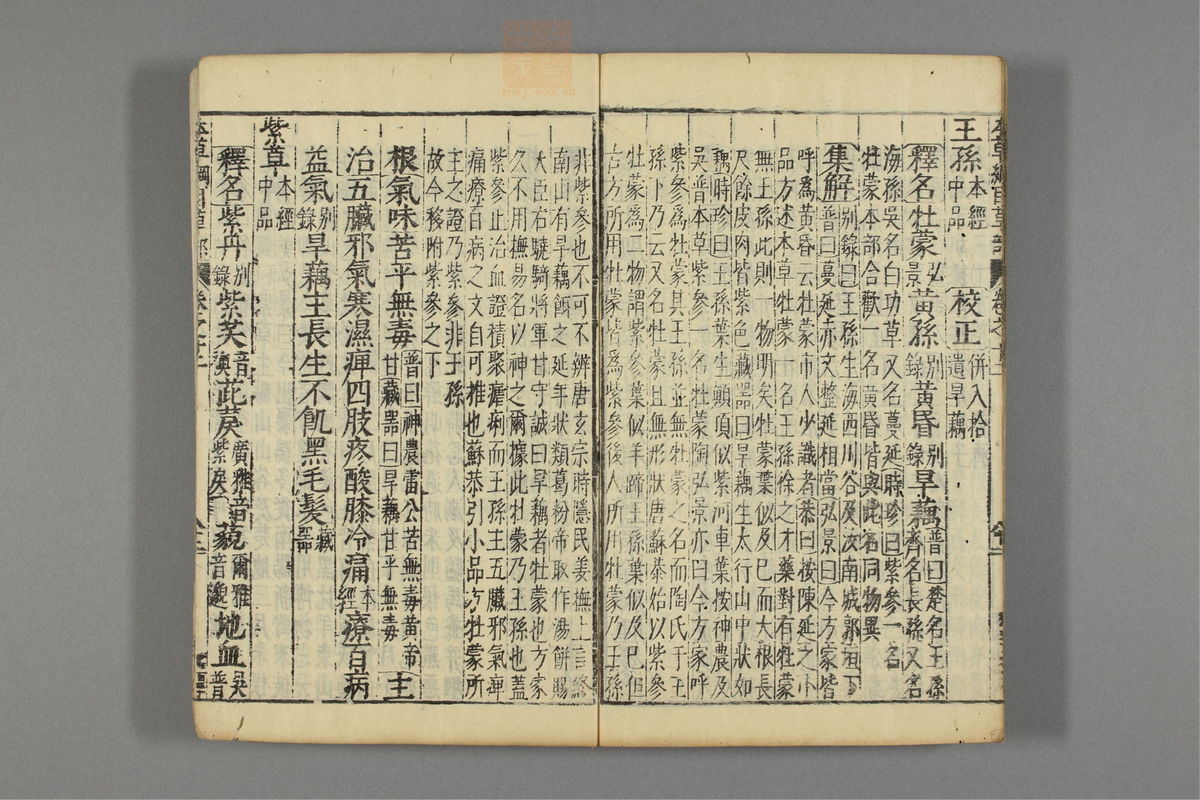 王孫 本經中品 校正 併入拾遺旱藕
釋名 牡蒙弘景 黃孫別錄 黃昏別錄 旱藕 普曰楚名王孫齊名長孫又名
海孫吳名白功草又名蔓延時珍曰紫參一名
牡蒙本部合歡一名黃昏皆與此名同物異
集解 別錄曰王孫生海西川谷及汝南城郭垣下
普曰蔓延赤文莖葉相當弘景曰今方家皆
呼爲黃昏云牡蒙市人少識者恭曰按陳延之小
品方述本草牡蒙一名王孫徐之才藥對有牡蒙
無王孫此則一物明矣牡蒙葉似及巳而大根長
尺餘皮肉皆紫色藏器曰旱藕生太行山中狀如
藕時珍曰王孫葉生顛頂似紫河車葉按神農及
吳普本草紫參一名牡蒙陶弘景亦曰今方家呼
紫參爲牡蒙其王孫並無牡蒙之名而陶氏于王
孫下乃云又名牡蒙且無形狀唐蘇恭始以紫參
牡蒙爲二物謂紫參葉似羊蹄王孫葉似及巳但
古方所用牡蒙皆爲紫參後人所用牡蒙乃王孫
非紫參也不可不辨唐玄宗時隱民姜撫上言終
南山有旱藕餌之延年狀類葛粉帝取作湯餅賜
大臣右驍騎將軍甘守誠曰旱藕者牡蒙也方家
久不用撫易名以神之爾據此牡蒙乃王孫也蓋
紫參止治血證積聚瘧痢而王孫主五臟邪氣痺
痛療百病之文自可推也蘇恭引小品方牡蒙所
主之證乃紫參非王孫
故今移附紫參之下
根氣味苦平無毒 普曰神農雷公苦無毒黃帝甘藏器曰旱藕甘平無毒 主
治五臟邪氣寒濕痺四肢疼酸膝冷痛本經療百病
益氣別錄旱藕主長生不飢黑毛髮藏器
紫草 本經中品
釋名 紫丹別錄 紫芺音襖 茈䓞廣雅音紫戾 藐爾雅音邈 地血吳普